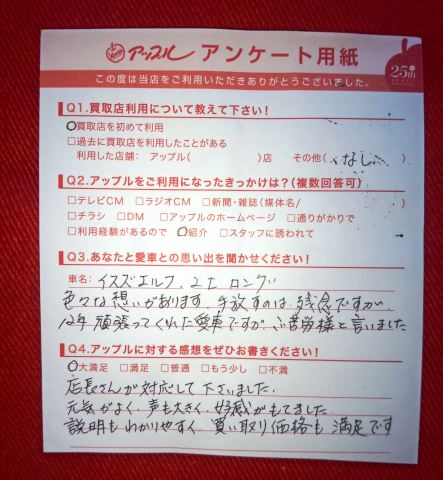 アップル アンケート用紙
25th
この度は当店をご利用いただきありがとうございました。
Q1.買取店利用について教えて下さい!
○買取店を初めて利用
□過去に買取店を利用したことがある
利用した店舗: アップル( )店 その他( なし )
Q2.アップルをご利用になったきっかけは?(複数回答可)
□テレビCM □ラジオCM □新聞・雑誌(媒体名/ )
□チラシ □DM □アップルのホームページ □通りがかりで
□利用経験があるので ○紹介 □スタッフに誘われて
Q3.あなたと愛車との思い出を聞かせください!
車名: イスズエルフ 2t ロング
色々な想いがあります。手放すのは、残念ですが
12年頑張ってくれた愛車ですが ご苦労様と言いました
Q4.アップルに対する感想をぜひお書きください!
○大満足 □満足 □普通 □もう少し □不満
店長さんが対応して下さいました。
元気がよく、声も大きく、好感がもてました。
説明もわかりやすく、買い取り価格も満足です